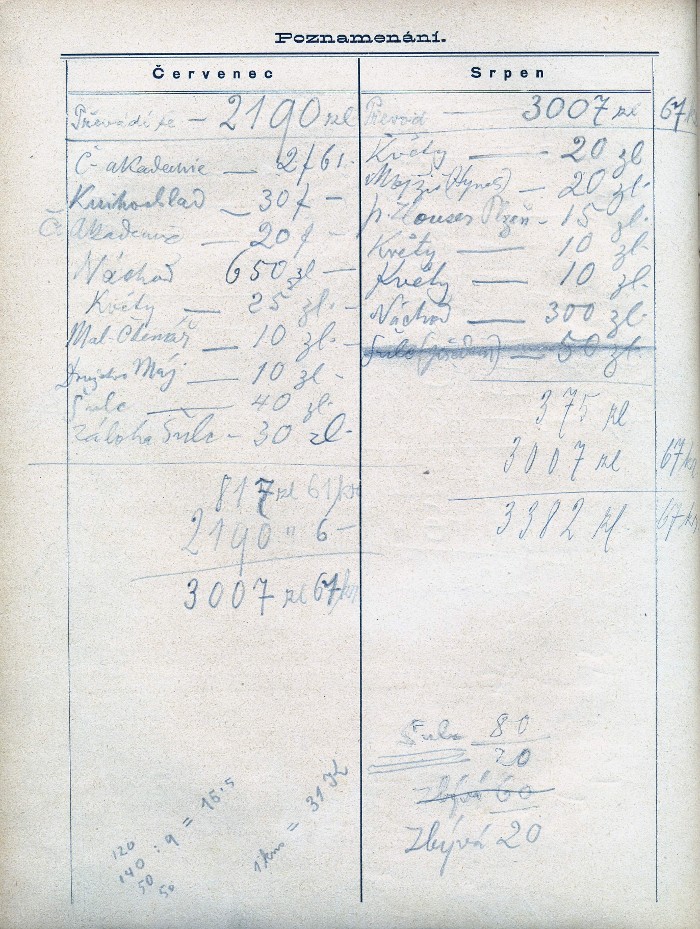 Poznamenání.
Červenec
Převádí se — 2190 zl
Č. akademie — 2 f 61.
Knihosklad — 30 f —
Č. Akademie — 20 f —
Náchod 650 zl —
Květy — 25 zl. —
Mal. Čtenář — 10 zl. —
Družstvo Máj — 10 zl —
Šulc — 40 zl.
Záloha Šulc — 30 zl.
817 zl 61 kr
2190 " 6 —
3007 zl 67 kr
120
140 : 9 = 16.5
50
50
1 km = 31 K
Srpen
Převod — 3007 zl 67 kr
Květy — 20 zl
— 20 zl.
Plzeň — 15 zl.
Květy — 10 zl.
Květy — 10 zl.
Náchod — 300 zl.
Šulc — 50 zl.
375 zl
3007 zl 67 kr
3382 zl. 67 kr
Šulc 80
20
Zbývá 60
Zbývá 20